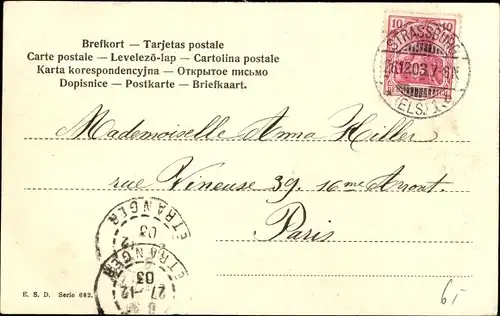 Brefkort — Tarjetas postale
Carte postale — Levelező-lap — Cartolina postale
Karta korespondencyjna — Открытое письмо
Dopisnice — Postkarte — Briefkaart.
10 10
STRASSBURG
26.12.03. 7-8N
(ELS.) 1.
Mademoiselle Anna Hiller
rue Vineuse 39. 16me Arront.
Paris
ETRANGER
03
ETRANGER
27-12
03
E. S. D. Serie 682.
65